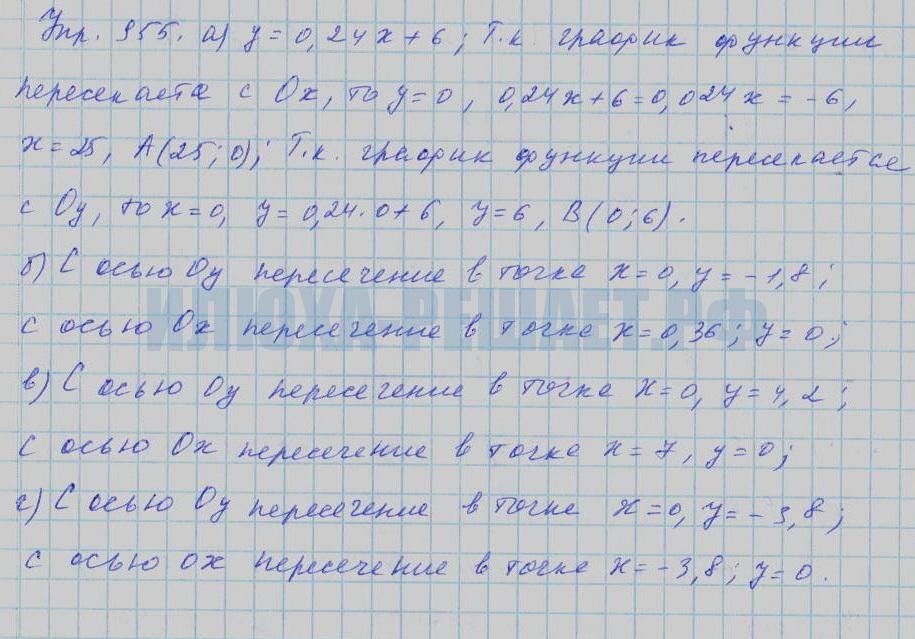 Упр. 955. а) y = 0,24x + 6; Т.к. график функции
пересекается с Ox, то y = 0, 0,24x + 6 = 0, 024x = -6,
x = 25, A(25; 0); Т.к. график функции пересекается
с Oy, то x = 0, y = 0,24·0 + 6, y = 6, B(0; 6).
б) С осью Oy пересечение в точке x = 0, y = -1,8;
ИЛЮХА-РЕШАЕТ.РФ
с осью Ox пересечение в точке x = 0,36; y = 0;
в) С осью Oy пересечение в точке x = 0, y = 4,2;
с осью Ox пересечение в точке x = 7, y = 0;
г) С осью Oy пересечение в точке x = 0, y = -3,8;
с осью ox пересечение в точке x = -3,8; y = 0.